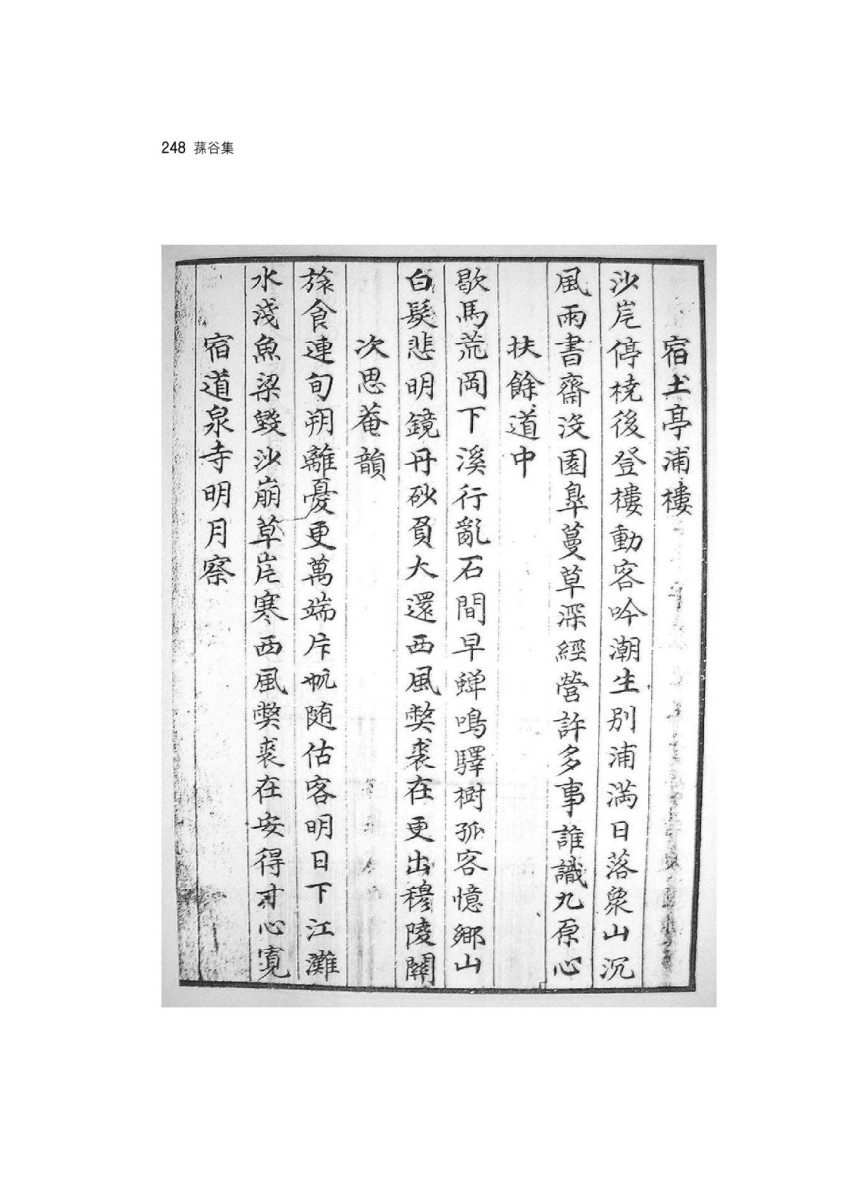 248 蓀谷集
宿土亭浦樓
沙岸停橈後登樓動客吟潮生別浦滿日落衆山沉
風雨書齋沒園臯蔓草深經營許多事誰識九原心
扶餘道中
歇馬荒岡下溪行亂石間早蟬鳴驛樹孤客憶鄉山
白髮悲明鏡丹砂負大還西風獘裘在更出穆陵關
次思菴韻
旅食連旬朔離憂更萬端片帆随估客明日下江灘
水淺魚梁毀沙崩草岸寒西風獘裘在安得寸心寬
宿道泉寺明月寮